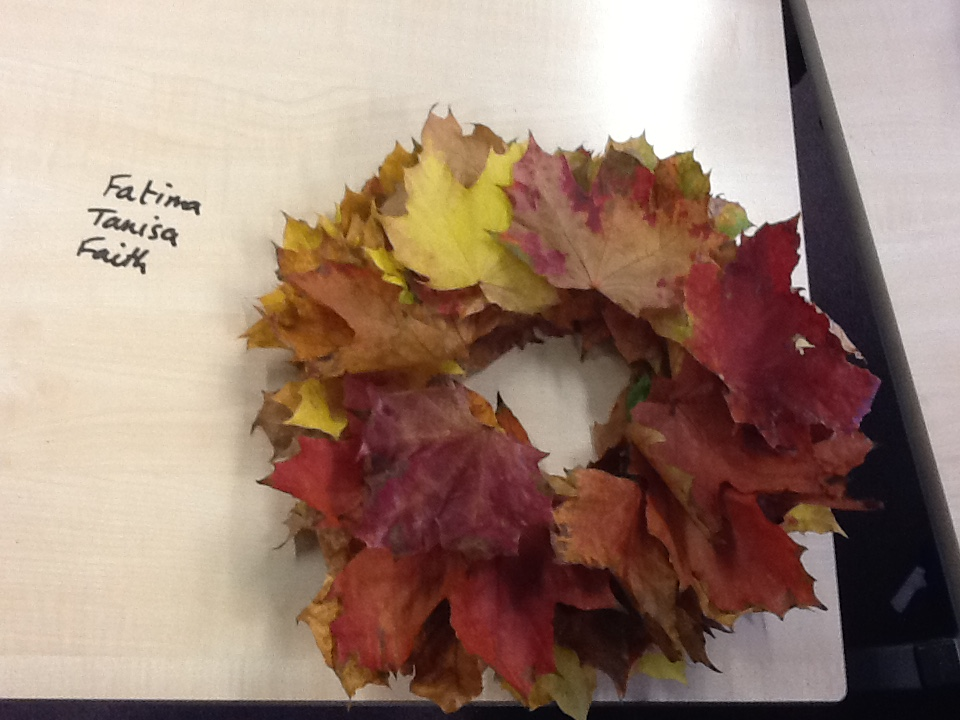 Fatima
Tanisa
Faith